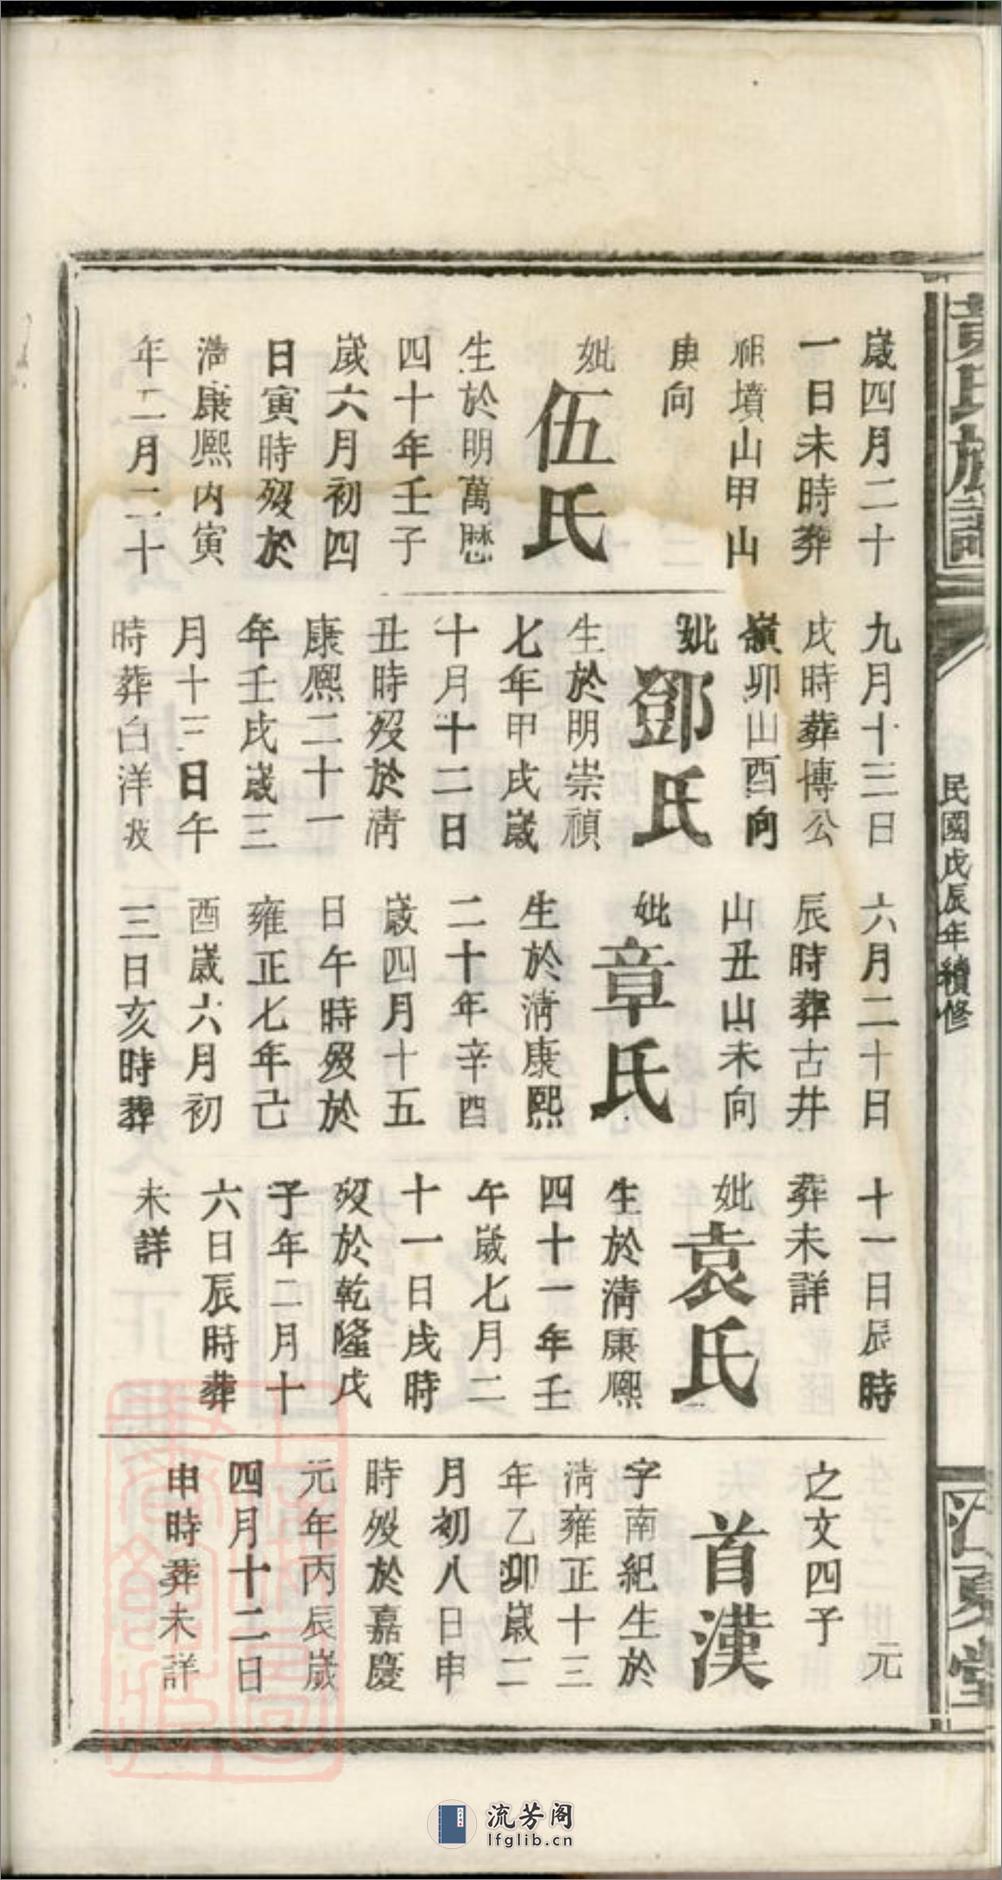 黃氏族譜
民國戊辰年續修
江夏堂
歲四月二十
一日未時葬
祖墳山甲山
庚向
妣
伍氏
生於明萬歷
四十年壬子
歲六月初四
日寅時歿於
清康熙丙寅
年二月二十
九月十三日
戌時葬博公
嶺卯山酉向
妣
鄧氏
生於明崇禎
七年甲戌歲
十月十二日
丑時歿於清
康熙二十一
年壬戌歲三
月十三日午
時葬白洋坡
六月二十日
辰時葬古井
山丑山未向
妣
章氏
生於清康熙
二十年辛酉
歲四月十五
日午時歿於
雍正七年己
酉歲六月初
三日亥時葬
十一日辰時
葬未詳
妣
袁氏
生於清康熙
四十一年壬
午歲七月二
十一日戌時
歿於乾隆戊
子年二月十
六日辰時葬
未詳
元
之文四子
首漢
字南紀生於
清雍正十三
年乙卯歲二
月初八日申
時歿於嘉慶
元年丙辰歲
四月十二日
申時葬未詳
流芳阁
lfglib.cn